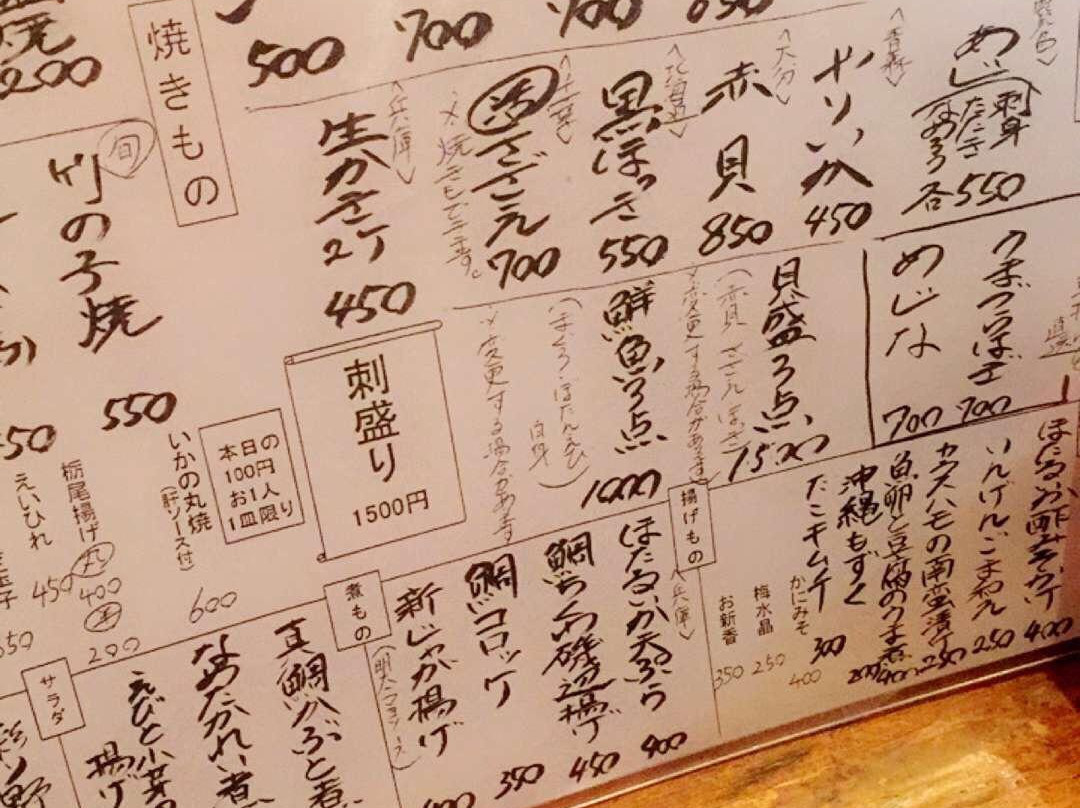 500
700
700
850
めじ
刺身
たたき
なめろう
各550
<青森>
やりいか
450
<大分>
赤貝
850
<北海道>
黒ほっき
550
<千葉>
活さざえ
700
※焼きもできます。
<兵庫>
生かき
2ケ
450
焼きもの
旬
竹の子焼
550
200
めじな
700
700
貝盛り3点
1500
(赤貝 さざえ ほっき)
※変更する場合があります
鮮魚3点
1000
(まぐろ・ぼたんえび
白身)
※変更する場合があります
刺盛り
1500円
本日の
100円
お1人
1皿限り
いかの丸焼
(肝ソース付)
600
栃尾揚げ
丸
400
半
200
えいひれ
450
ほたるいか酢みそがけ
400
いんげんごまあえ
250
カワハモの南蛮漬け
250
魚卵と豆腐のうま煮
400
沖縄もずく
たこキムチ
300
かにみそ
400
梅水晶
250
お新香
350
揚げもの
<兵庫>
ほたるいか天ぷら
400
鯛ちくわ磯辺揚げ
450
鯛コロッケ
350
新じゃが揚げ
400
煮もの
真鯛かぶと煮
なめたかれい煮
サラダ
えびと小芽
揚げ